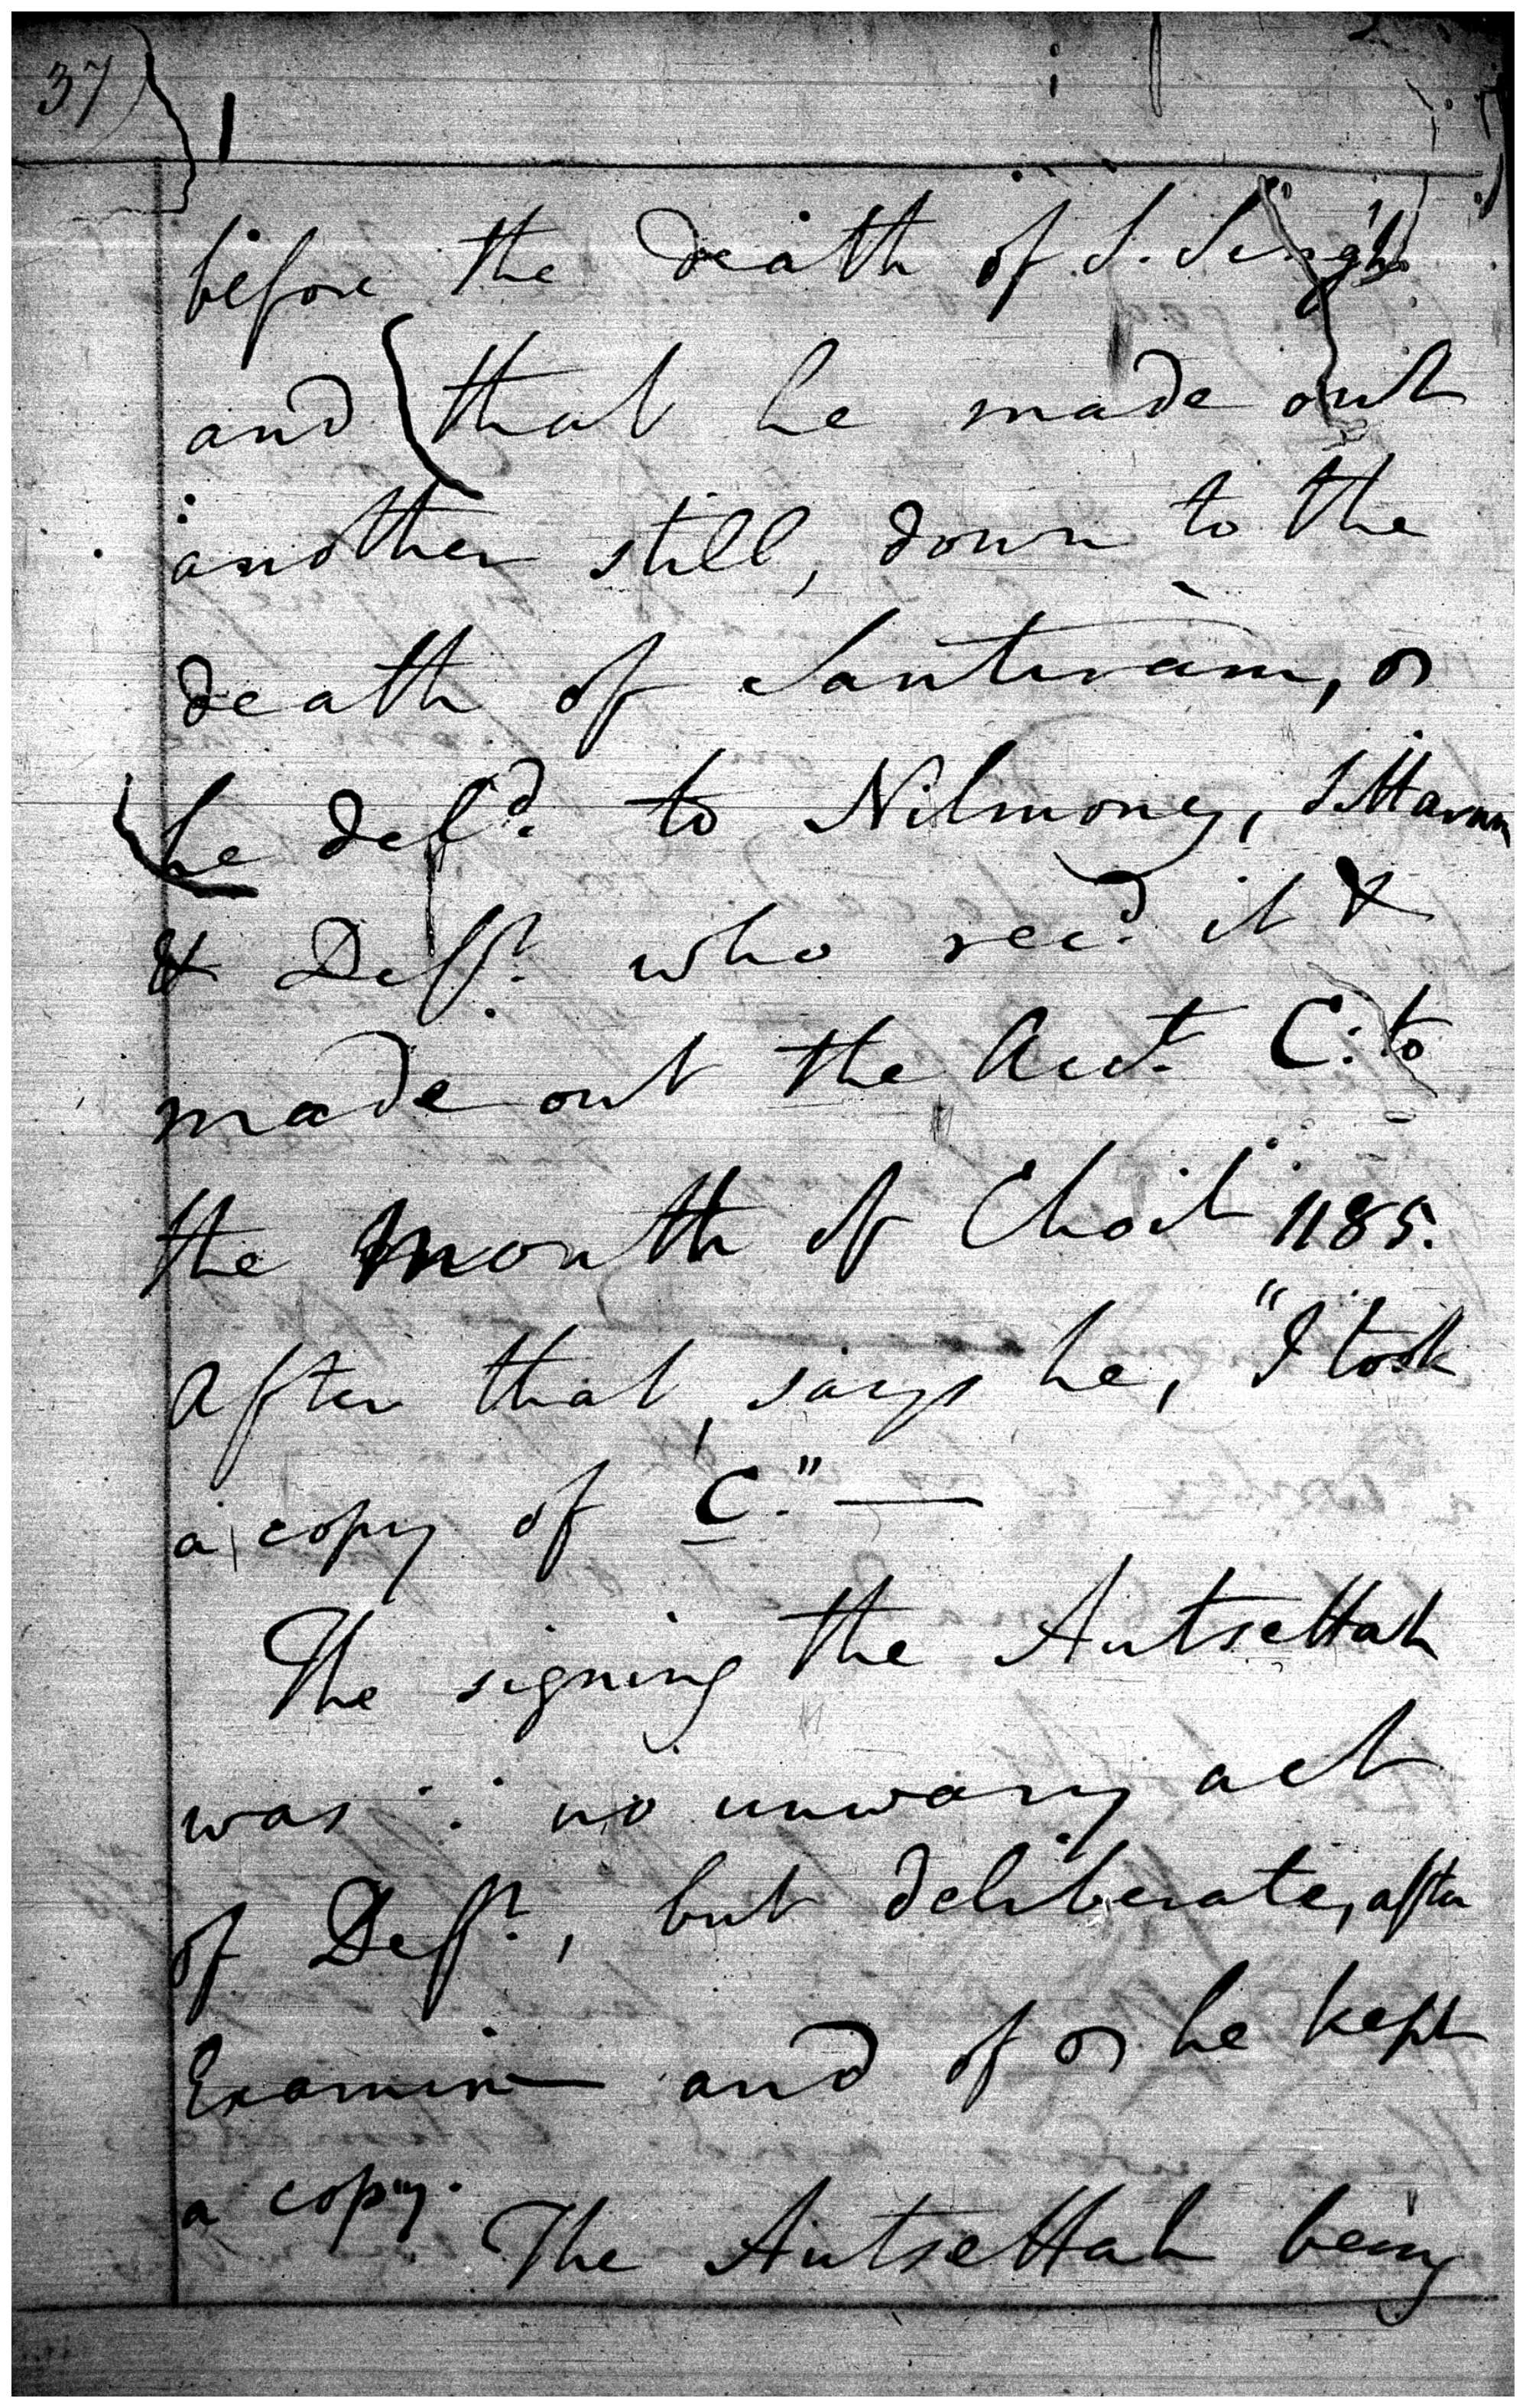 37)
before the death of S. Singh
and (that he made out
another still, down to the
death of Santiram,
he del^d. to Nilmoney,
& Def^t. who rec^d. it &
made out the Acct. C: to
the Month of Choit 1185.
After that, says he, "I took
a copy of C." —
The signing the Autsettah
was ∴ no unwary act
of Def^t., but deliberate, after
and of he kept
a copy.
The Autsettah being